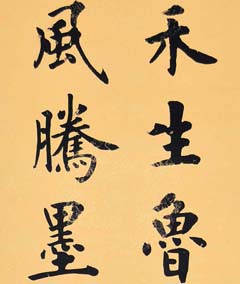 禾生魯
風騰墨